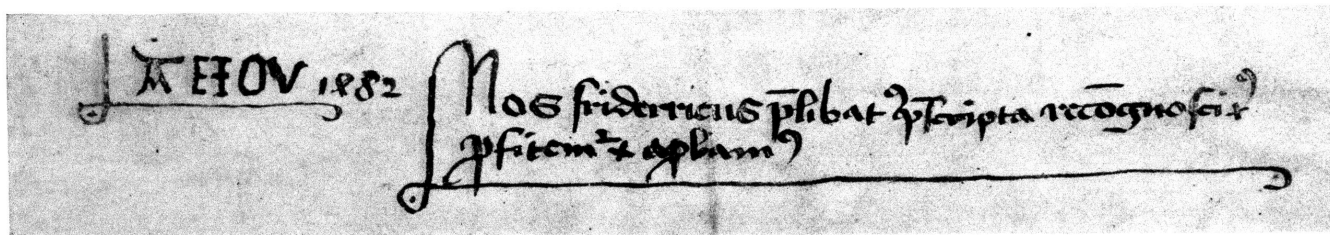 AEIOV 1482 Nos friderricus p̄libatꝰ p̄scripta recōgnosciꝰ
ꝓfitemᷣ & aꝓbamꝰ